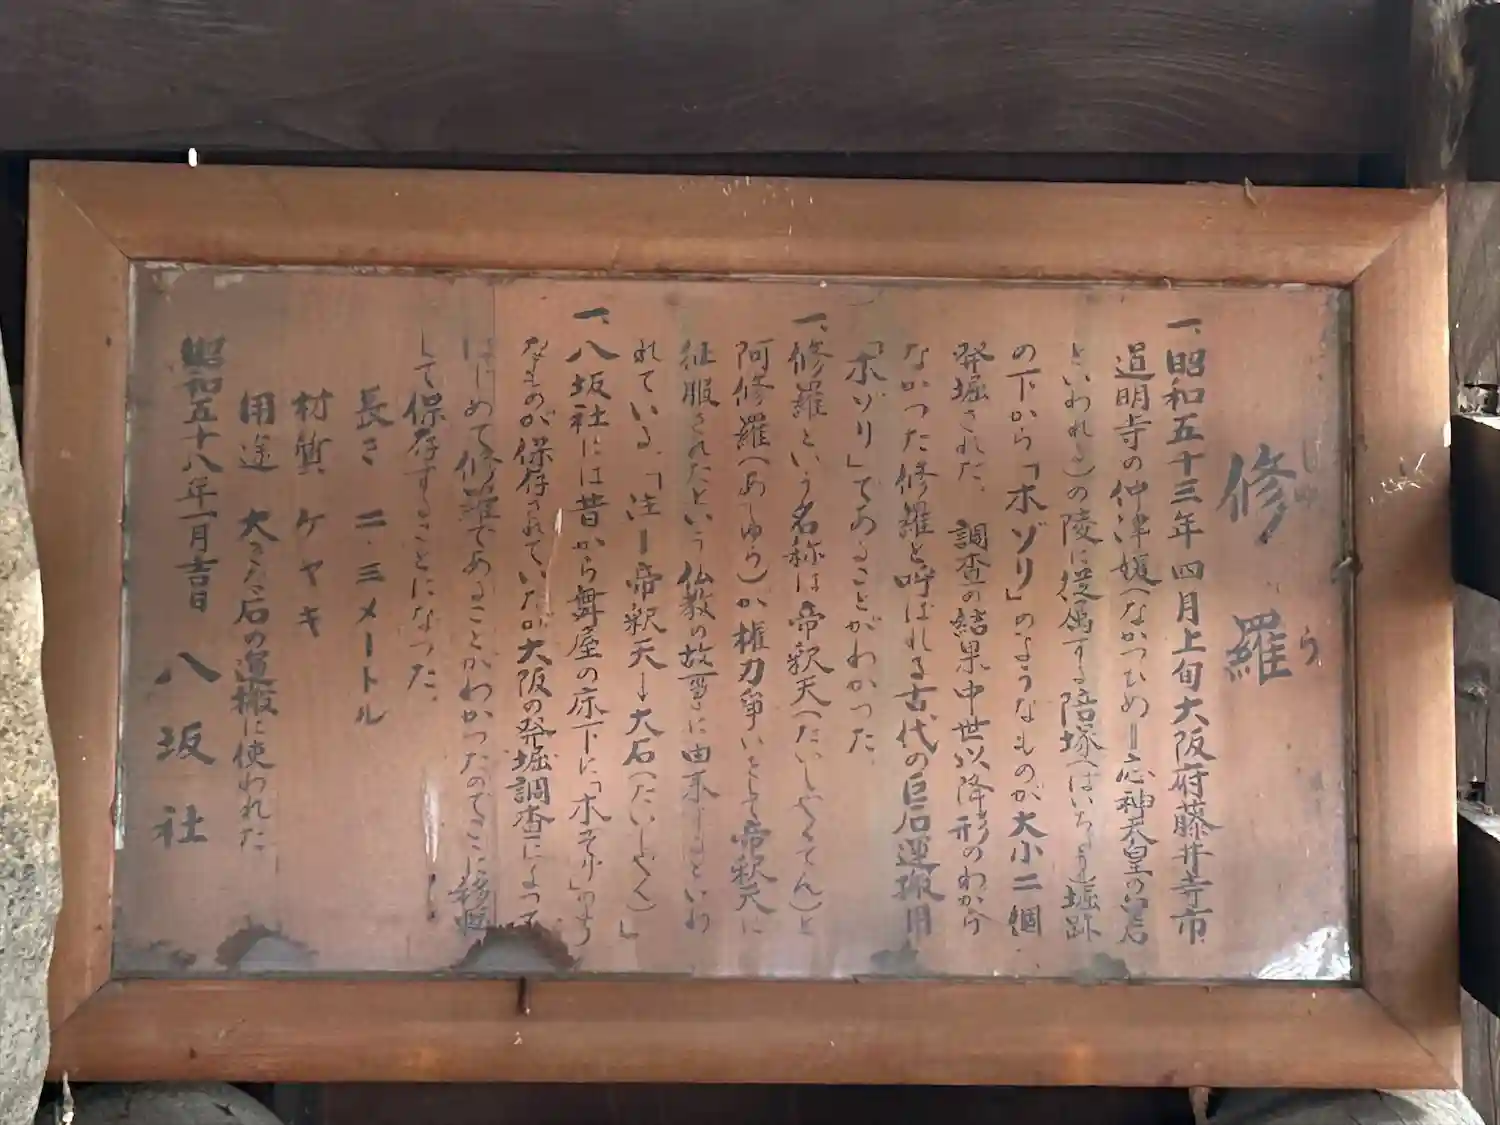 しゅ ら
修羅
一、昭和五十三年四月上旬大阪府藤井寺市
道明寺の仲津媛(なかつひめー応神天皇の皇后
といわれる)の陵に従属する陪塚(ばいちょう)堀跡
の下から「木ゾリ」のようなものが大小二個
発掘された。調査の結果中世以降形のわから
なかった修羅と呼ばれる古代の巨石運搬用
「木ゾリ」であることがわかった。
一、修羅という名称は帝釈天(たいしゃくてん)と
阿修羅(あしゅら)が権力争いをして帝釈天に
征服されたという仏教の故事に由来するといわ
れている。「注ー帝釈天→大石(たいしゃく)」
一、八坂社には昔から舞屋の床下に「木そり」のよう
なものが保存されていたが大阪の発掘調査によって
はじめて修羅であることがわかったのでここに移
して保存することになった。
長さ 二.三メートル
材質 ケヤキ
用途 大きな石の運搬に使われた
昭和五十八年一月吉日 八坂社